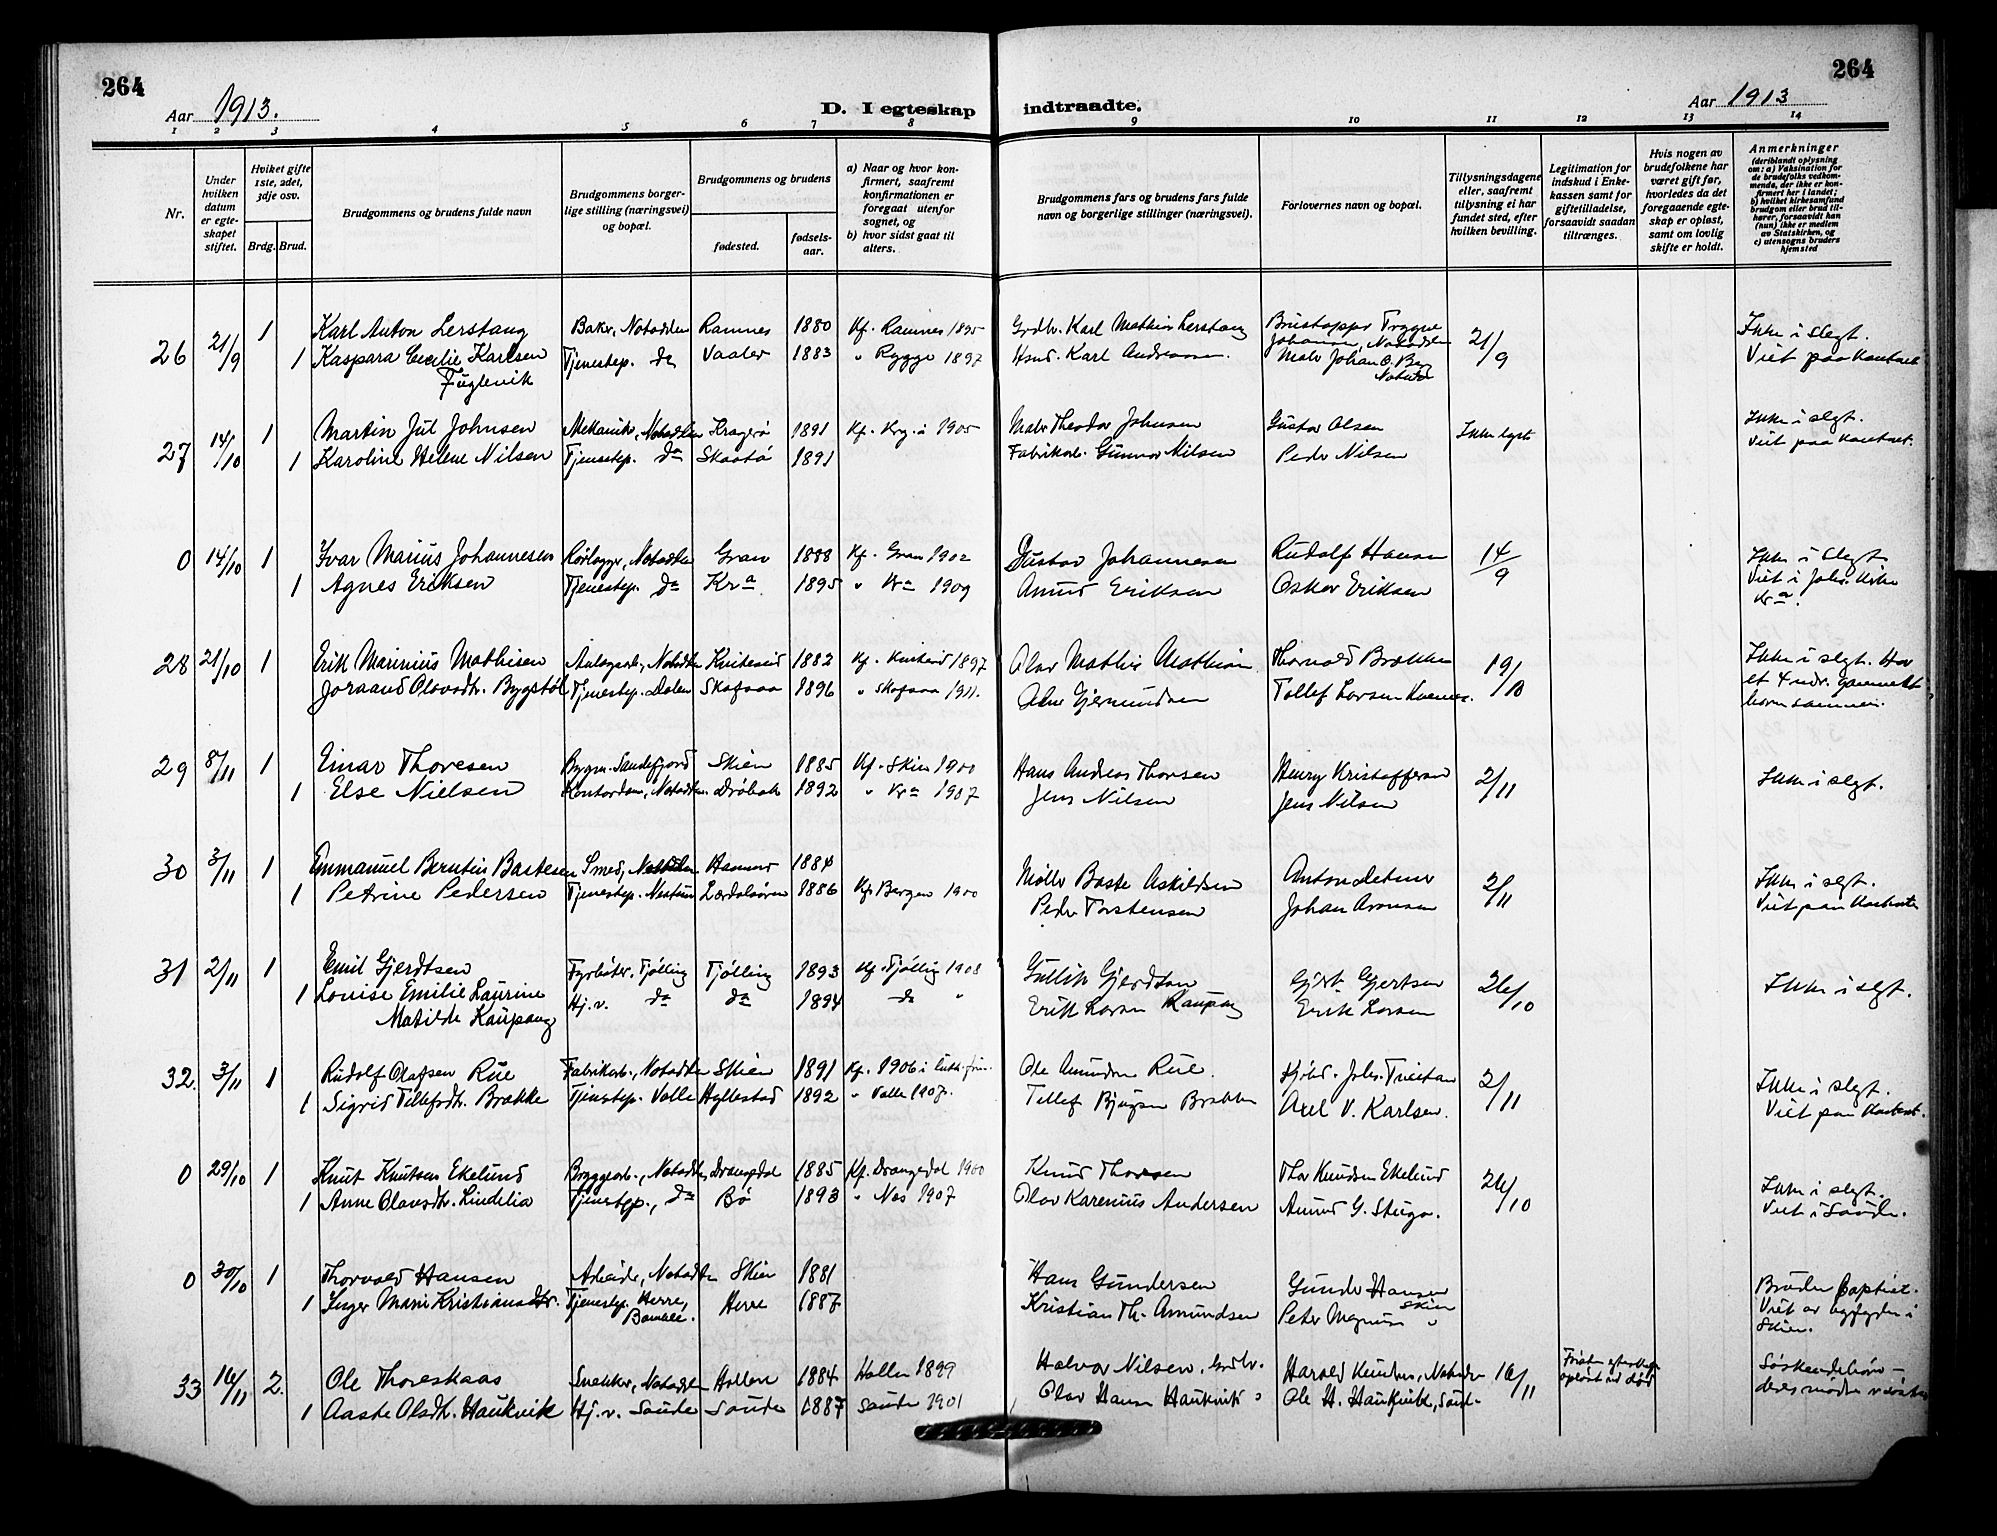 264
264
Aar 1913.
D. I egteskap indtraadte.
Aar 1913
1 2 3 4 5 6 7 8 9 10 11 12 13 14
Nr.
Under hvilken datum er egteskapet stiftet.
Hvilket gifte 1ste, 2det, 3dje osv.
Brdg. Brud.
Brudgommens og brudens fulde navn
Brudgommens borgerlige stilling (næringsvei) og bopæl.
Brudgommens og brudens
fødested.
fødselsaar.
a) Naar og hvor konfirmert, saafremt konfirmationen er foregaat utenfor sognet, og
b) hvor sidst gaat til alters.
Brudgommens fars og brudens fars fulde navn og borgerlige stillinger (næringsvei).
Forlovernes navn og bopæl.
Tillysningsdagene eller, saafremt tillysning ei har fundet sted, efter hvilken bevilling.
Legitimation for indskud i Enkekassen samt for giftetilladelse, forsaavidt saadan tiltrænges.
Hvis nogen av brudefolkene har været gift før, hvorledes da det foregaaende egteskap er opløst, samt om lovlig skifte er holdt.
Anmerkninger (deriblandt oplysning om: a) Vaksination for de brudefolks vedkommende, der ikke er konfirmert her i landet; b) hvilket kirkesamfund brudgom eller brud tilhører, forsaavidt han (hun) ikke er medlem av Statskirken, og c) utensogns bruders hjemsted
26 21/9 1 Karl Anton Lerstang Baker, Notodden Ramnes 1880 Kf. Ramnes 1895 Grdbr. Karl Mathias Lerstang Brustapper Trygve Johansen, Notodden 21/9 Ikke i slegt.
1 Kaspara Cecilie Karlsen Fuglevik Tjenestep. do Vaaler 1883 " Rygge 1897 Hsmd. Karl Andreassen. Maler Johan O. Notodden Viet paa Kontoret
27 14/10 1 Martin Jul Johnsen Mekanik, Notodden Kragerø 1891 Kf. Krg. i 1905 Maler Theodor Johnsen Gustav Olsen Ikke lyst Ikke i slegt.
1 Karoline Helene Nilsen Tjenestep. do Skaatø 1891 Fabrikarb. Gunnar Nilsen Peder Nilsen Viet paa Kontoret.
0 14/10 1 Ivar Marius Johannesen Rørlegger, Notodden Gran 1888 Kf. Gran 1902 Gustav Johannesen Rudolf Hansen 14/9 Ikke i slegt
1 Agnes Eriksen Tjenestep. do Kra. 1895 " Kra 1909 Amund Eriksen Oskar Eriksen Viet i Johs. Kirke Kra.
28 21/10 1 Erik Marinius Mathisen Anlægsarb, Notodden Kviteseid 1882 Kf. Kviteseid 1897 Olav Mathis Mathisen Thorvald Brokke 19/10 Ikke i slegt. Har
Joraand Olavsdtr. Bygstøl Tjenestep. Dalen Skafsaa 1896 " Skafsaa 1911. Gjermundsen Tollef Larsen et 4 mdr. gammelt barn sammen.
29 8/11 1 Einar Thoresen Bygm. Sandefjord Skien 1885 Kf. Skien 1900 Hans Andreas Thoresen Henry Kristoffersen 2/11 Ikke i slegt.
1 Else Nielsen Kontordame, Notodden Drøbak 1892 " Kra 1907 Jens Nilsen Jens Nilsen
30 3/11 1 Emmanuel Berntin Bastesen Smed, Notodden 1884 Møller Baste Askildsen Anton 2/11 Ikke i slegt.
1 Petrine Pedersen Tjenestep. Lærdalsøren 1886 Kf. Bergen 1900 Peder Torstensen Johan Aronsen Viet paa Kontoret
31 2/11 1 Emil Gjerdtsen Fyrbøter. Tjølling Tjølling 1893 Kf. Tjølling 1908 Gullik Gjerdtsen Gjert Gjertsen 26/10 Ikke i slegt.
1 Louise Emilie Laurine Matilde Kaupang Hj. v. do do 1894 do " Erik Larsen Kaupang Erik Larsen
32. 3/11 1 Rudolf Olafsen Rue Fabrikarb., Notodden Skien 1891 Kf. 1906 i luth. frim. Ole Amundsen Rue. Johs. Tveitan 2/11 Ikke i slegt.
1 Sigrid Tellefsdtr. Brokke Tjenestep. Valle Hyllestad 1892 " Valle 1907. Tellef Bjugsen Brokke Axel V. Karlsen. Viet paa Kontoret.
0 29/10 1 Knut Knutsen Ekelund Bryggearb., Notodden Drangedal 1885 Kf. Drangedal 1900 Knud Thorsen Thor Knudsen Ekelund 26/10 Ikke i slegt.
1 Anne Olavsdtr. Lindelia Tjenestep., do Bø 1893 " Nes 1907 Olav Karenius Andersen Amund G. Stuga. Viet i Saude.
0 30/10 1 Thorvald Hansen Arbeider, Notodden Skien 1881 Hans Gundersen Gunder Hansen Skien Bruden Baptist.
1 Inger Marie Kristiansdtr. Tjenestep. Herre, Bamble. Herre 1887 Kristian Th. Amundsen Peter Magnus " Viet av byfogden i Skien.
33 16/11 2. Ole Thoreskaas Snekker, Notodden Hollen 1884 Hollen 1899 Halvor Nilsen, Grdbr. Harald Knudsen, Notodden 16/11 Første egteskap opløst ved død Søskendebarn –
1 Aaste Olsdtr. Haukvik Hj. v. Saude Saude 1887 Saude 1901 Olav Hansen Haukvik " Ole H. Haukvik, Saude deres mødre